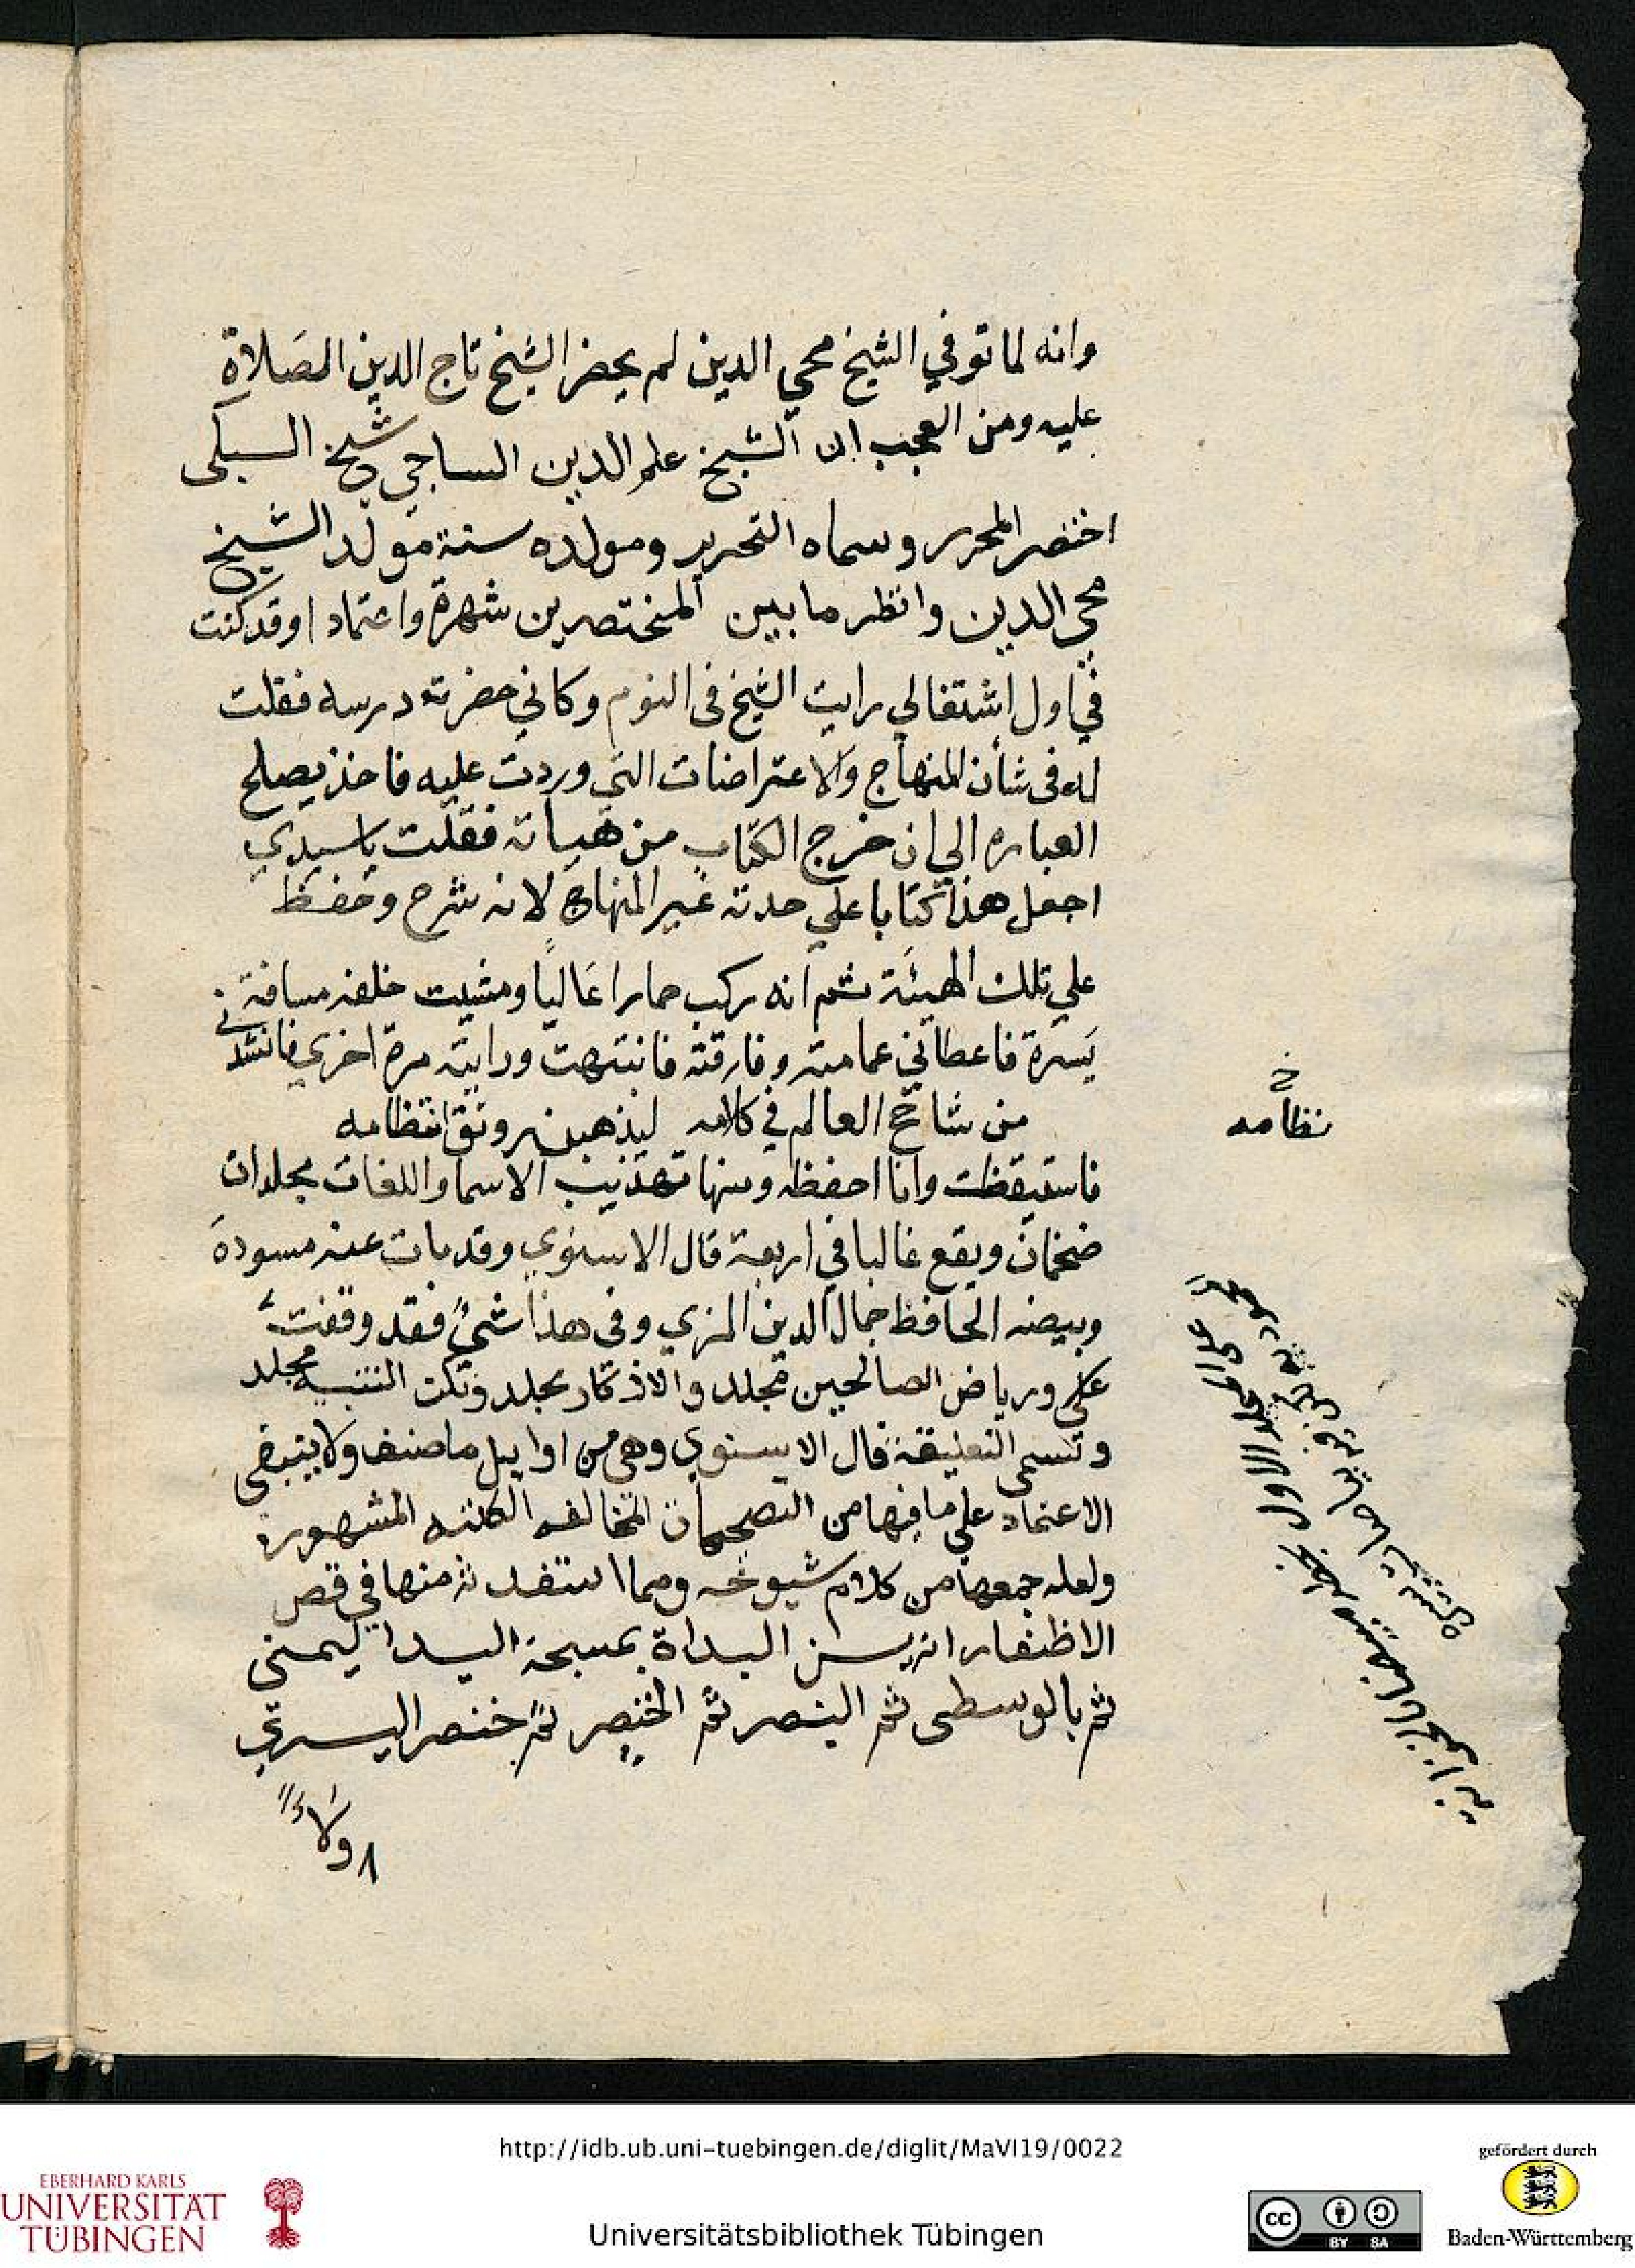 وانه لما توفي الشيخ محي الدين لم يحضر الشيخ تاج الدين الصلاة
عليه ومن العجب ان الشيخ علم الدين الساجي شيخ السبكى
اختصر المحرر وسماه التحرير ومولده سنة مولد الشيخ
محى الدين وانظر ما بين المختصرين شهرة واعتمادا وقد كنت
في اول اشتغالي رايت الشيخ فى النوم وكاني حضرته درسه فقلت
له فى شأن المنهاج والاعتراضات التي وردت عليه فاخذ يصلح
العباره الي ان خرج الكتاب من هيأته فقلت ياسيدي
اجعل هذا كتابا علي حدته غير المنهاج لانه شرح وحفظ
علي تلك الهيئة ثم انه ركب حمارا عاليا ومشيت خلفه مسافة
يسرة فاعطاني عمامته وفارقته فانتبهت ورايته مرة اخري فانشدني
من شاحح العالم في كلامه ليذهبن رونق انتظامه
خ
نظامه
فاستيقظت وانا احفظه ومنها تهذيب الاسما واللغات مجلدان
ضخمان ويقع غالبا في اربعة قال الاسنوي وقد مات عنه مسودة
وبيضه الحافظ جمال الدين المزي وفى هذا شئ فقد وقفت
على ورياض الصالحين مجلد والاذكار مجلد ونكت التنبيه مجلد
وتسمى التعليقة قال الاسنوي وهي من اوايل ما صنف ولا ينبغى
الاعتماد على ما فيها من التصحيحات المخالفه الكتبه المشهورة
ولعله جمعها من كلام شيوخه ومما استفدته منها في قص
الاظفار انه يسن البداة بمسبحة اليد اليمنى
ثم بالوسطى ثم البنصر ثم الخنصر ثم خنصر اليسري
ولاء
على المجلد الاول